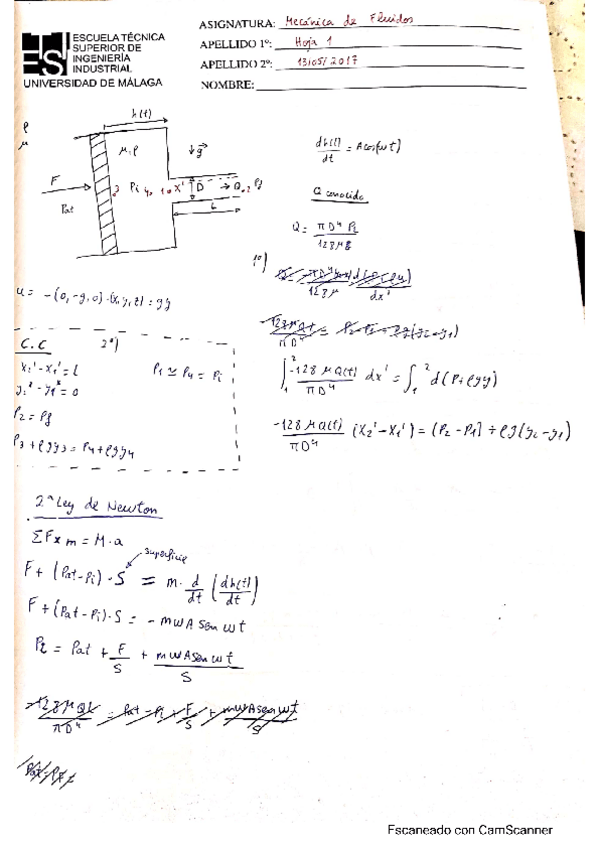 ESCUELA TÉCNICA
SUPERIOR DE
INGENIERÍA
INDUSTRIAL
UNIVERSIDAD DE MÁLAGA
ASIGNATURA: Mecánica de Fluidos
APELLIDO 1º: Hoja 1
APELLIDO 2º: 13/05/2017
NOMBRE:
h(t)
ρ
μ
μ, ρ
↓g
F
Pat
Pi
4
1
x'
D
→ Q
2
L
dh(t)/dt = A cos(ωt)
Q conocido
Q = πD⁴ Pl / 128μ
1º)
u = -(0,-g,0)·(x,y,z) = gy
C.C 2º)
x2' - x1' = L
P1 ≃ P4 = Pi
P3 + ρgy3 = P4 + ρgy4
∫₁² -128 μQ(t)/πD⁴ dx' = ∫₁² d(P+ρgy)
-128 μQ(t)/πD⁴ (x2' - x1') = (P2 - P1) + ρg(y2 - y1)
2ª Ley de Newton
ΣFx m = M·a
superficie
F + (Pat - Pi)·S = m· d/dt (dh(t)/dt)
F + (Pat - Pi)·S = - mωA sen ωt
Pi = Pat + F/S + mωA sen ωt/S
Escaneado con CamScanner